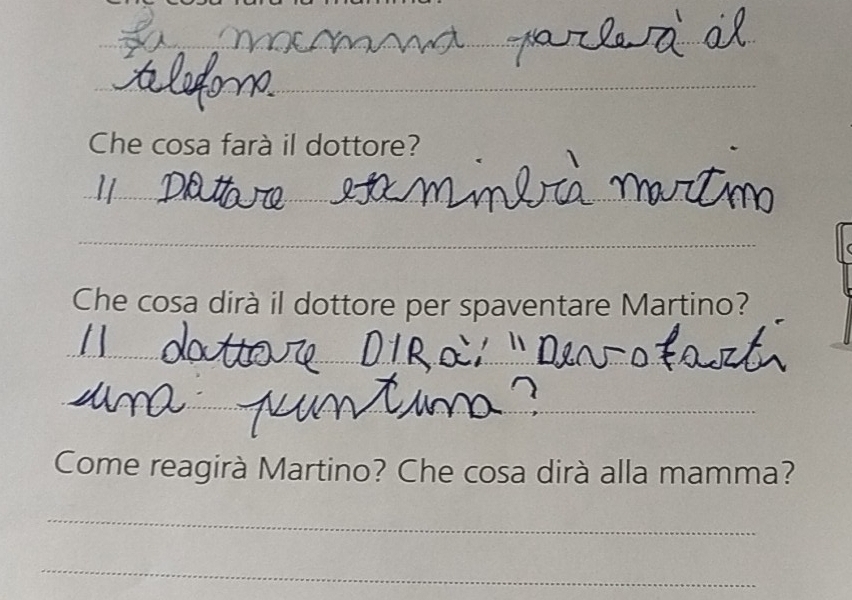 La mamma parlerà al
telefono.
Che cosa farà il dottore?
Il Dottore esaminerà martino
Che cosa dirà il dottore per spaventare Martino?
Il dottore DIRà: "Devo farti
una puntura?
Come reagirà Martino? Che cosa dirà alla mamma?